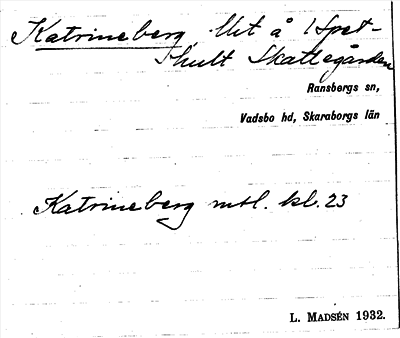 Katrineberg, lht å 1 Spet-
hult Skattegården
Ransbergs sn,
Vadsbo hd, Skaraborgs län
Katrineberg mtl. kl. 23
L. MADSÉN 1932.